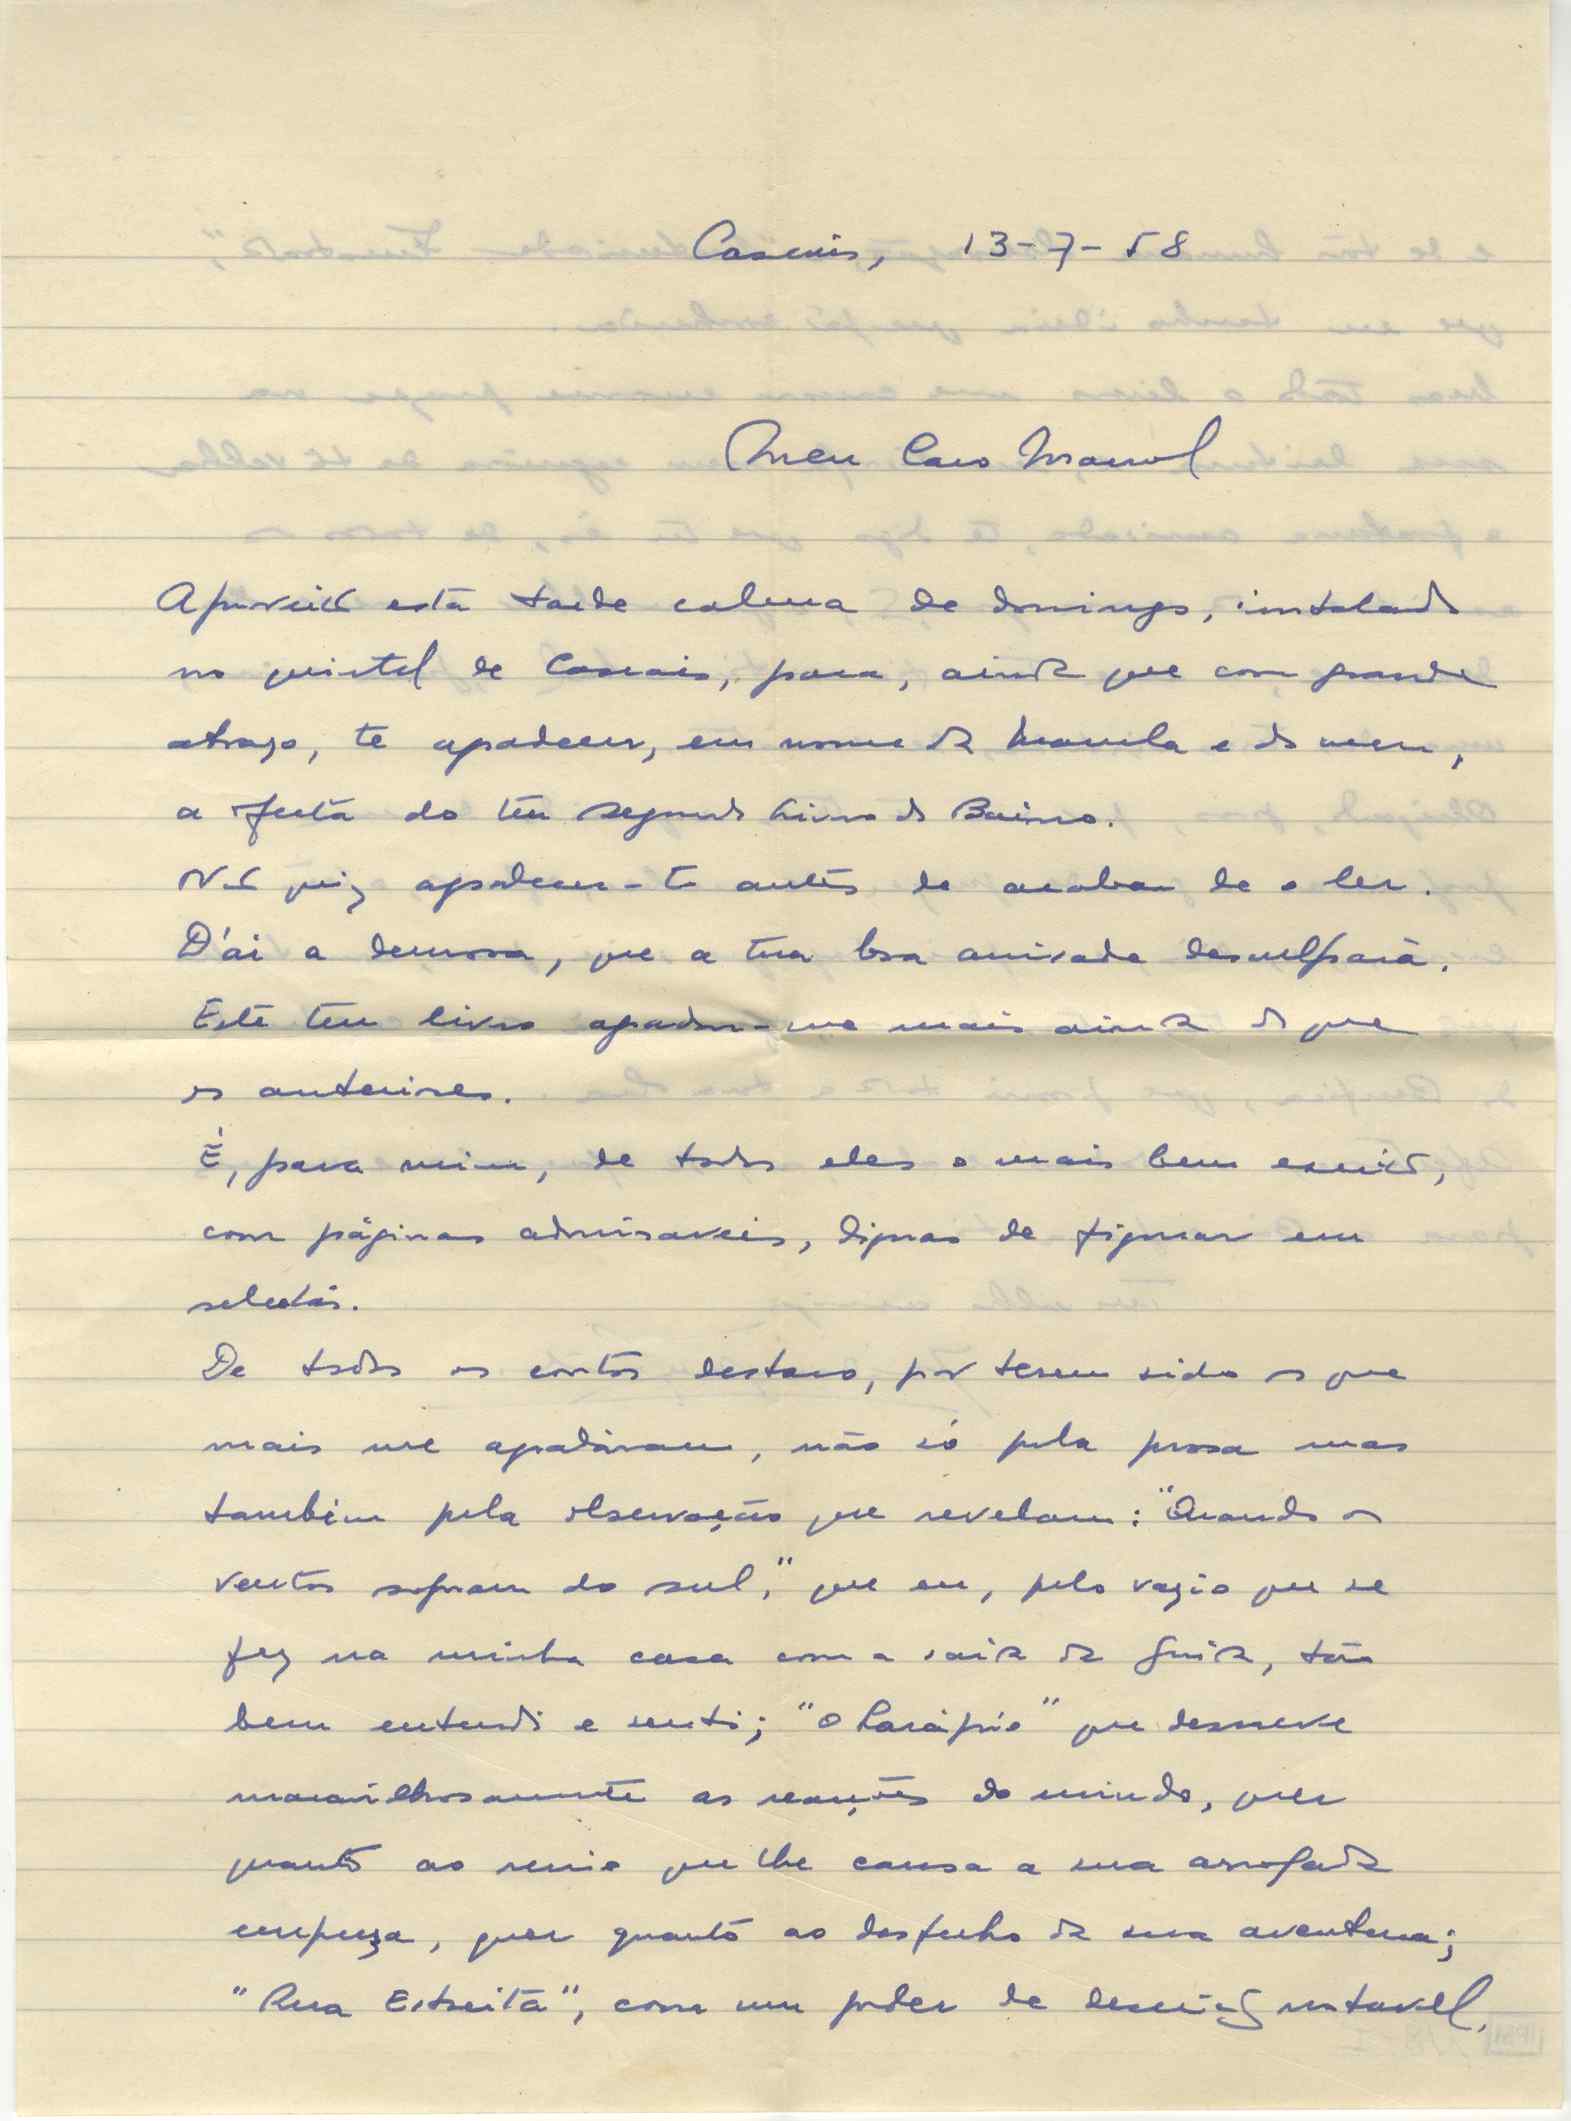 Cascais, 13-7-58
Meu Caro Manuel
Aproveito esta tarde calma de domingo, instalado
no quintal de Cascais, para, ainda que com grande
atrazo, te agradecer, em nome da Manuela e do meu,
a oferta do teu segundo Livro do Bairro.
Não quiz agradecer-te antes de acabar de o ler.
D'ái a demora, que a tua boa amizade desculpará.
Este teu livro agradou-me mais ainda do que
os anteriores.
É, para mim, de todos eles o mais bem escrito,
com páginas admiraveis, dignas de figurar em
selectas.
De todos os contos destaco, por terem sido os que
mais me agradáram, não só pela prosa mas
também pela observação que revelam: "Quando os
ventos sopram do sul," que eu, pelo vazio que se
fez na minha casa com a saida da Guida, tão
bem entendi e senti; "O Larápio" que descreve
maravilhosamente as reacções do miudo, quer
quanto ao receio que lhe causa a sua arrojada
empreza, quer quanto ao desfecho da sua aventura;
"Rua Estreita", com um poder de descrição notavel,